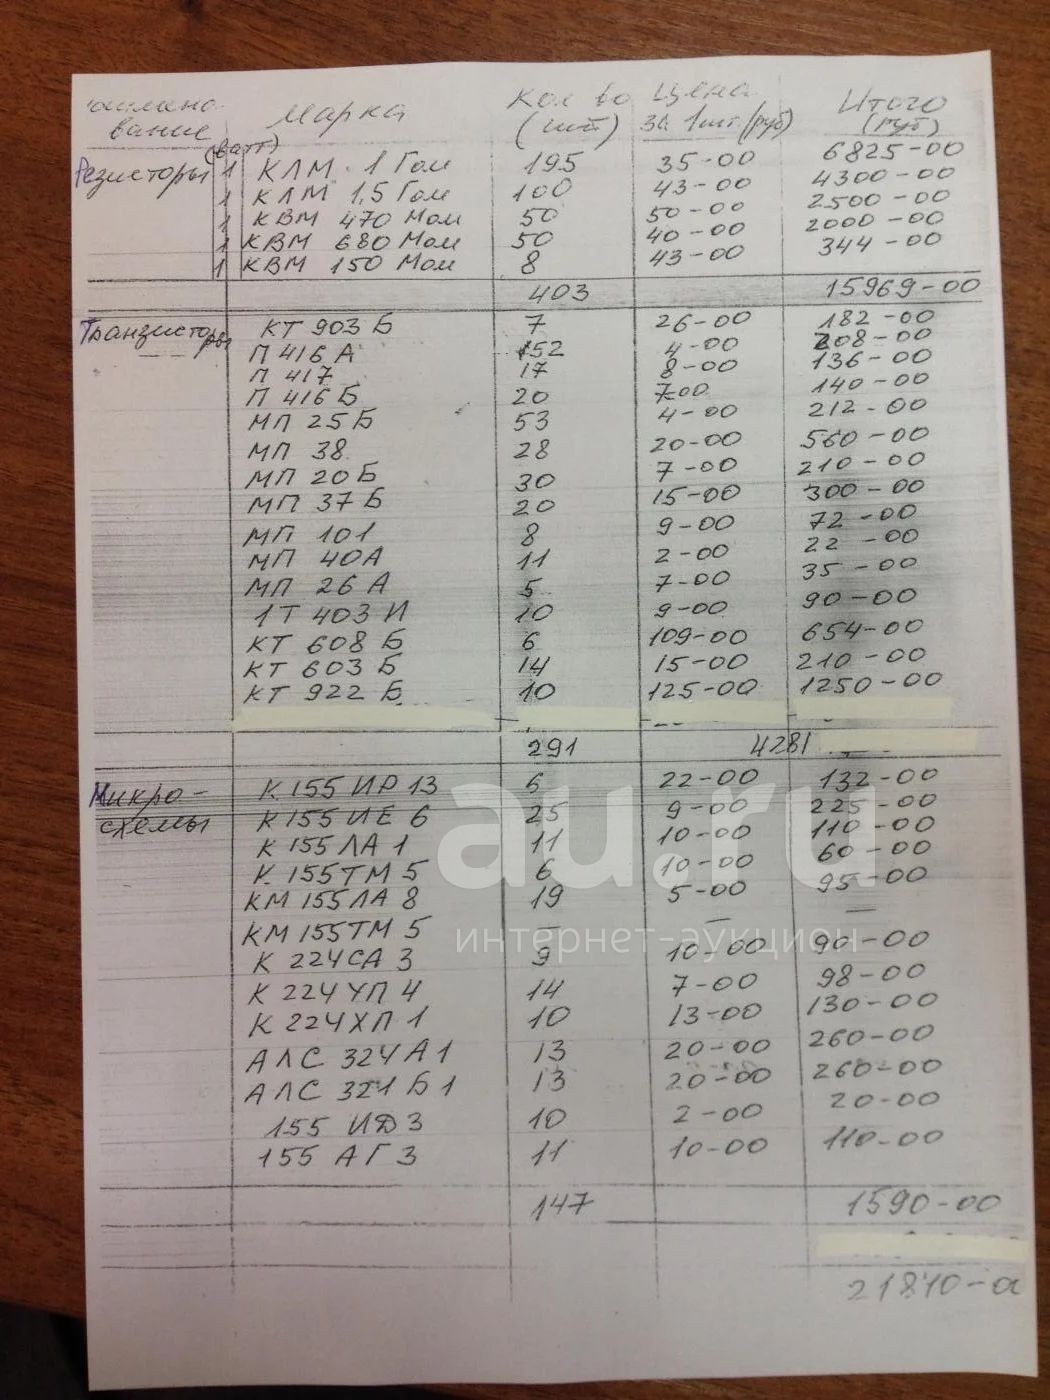 вание (ватт) Марка Кол-во (шт) Цена за 1шт.(руб) Итого (руб)
Резисторы 1 КЛМ 1 Гом 195 35-00 6825-00
1 КЛМ 1,5 Гом 100 43-00 4300-00
1 КВМ 470 Мом 50 50-00 2500-00
1 КВМ 680 Мом 50 40-00 2000-00
1 КВМ 150 Мом 8 43-00 344-00
403 15969-00
Транзисторы КТ 903 Б 7 26-00 182-00
П 416 А 52 4-00 208-00
П 417 17 8-00 136-00
П 416 Б 20 7-00 140-00
МП 25 Б 53 4-00 212-00
МП 38 28 20-00 560-00
МП 20 Б 30 7-00 210-00
МП 37 Б 20 15-00 300-00
МП 101 8 9-00 72-00
МП 40А 11 2-00 22-00
МП 26 А 5 7-00 35-00
1Т 403 И 10 9-00 90-00
КТ 608 Б 6 109-00 654-00
КТ 603 Б 14 15-00 210-00
КТ 922 Б 10 125-00 1250-00
291 4281
Микро- К 155 ИР 13 6 22-00 132-00
схемы К 155 ИЕ 6 25 9-00 225-00
К 155 ЛА 1 11 10-00 110-00
К 155 ТМ 5 6 10-00 60-00
КМ 155 ЛА 8 19 5-00 95-00
КМ 155 ТМ 5 — — —
К 224 СА 3 9 10-00 90-00
К 224 УП 4 14 7-00 98-00
К 224 ХП 1 10 13-00 130-00
АЛС 324 А 1 13 20-00 260-00
АЛС 321 Б 1 13 20-00 260-00
155 ИД 3 10 2-00 20-00
155 АГ 3 11 10-00 110-00
147 1590-00
21840-00
au.ru
интернет-аукцион